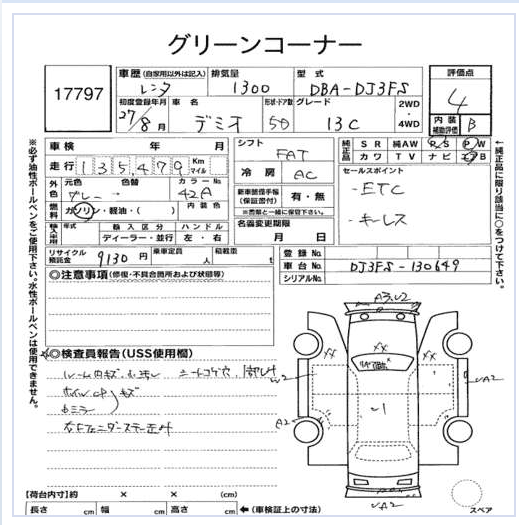 グリーンコーナー
17797
車歴 (自家用以外は記入) 排気量 型式 評価点
レンタ 1300 DBA-DJ3FS 4
初度登録年月 車名 形状・ドア数 グレード 2WD・4WD 内装補助評価
27/8月 デミオ 5D 13C B
車検 年 月 シフト 純正品 SR 純AW PS PW
走行 135,479 Km マイル FAT カワ TV ナビ エアB
外色 元色 色替 カラーNo. 冷房 セールスポイント
グレー 42A AC -ETC
燃料 ガソリン・軽油・( ) 内装色 新車整備手帳(保証書付) 有・無 -キーレス
※書類と一緒に保管下さい。
輸入車用 年式 輸入区分 ハンドル 名義変更期限
ディーラー・並行 左・右 月 日
リサイクル預託金 9130円 乗車定員 人 積載量 t
登録No.
車台No. DJ3FS-130649
シリアルNo.
◎注意事項(修復・不具合箇所および状態等)
◎検査員報告(USS使用欄)
ルーム内キズ
キズ
※必ず油性ボールペンをご使用下さい。水性ボールペンは使用できません。
←純正品に限り該当に○をつけて下さい。
XX XX XX
A2
A2
【荷台内寸】約 × × (cm)
長さ cm 幅 cm 高さ cm ←(車検証上の寸法)
スペア